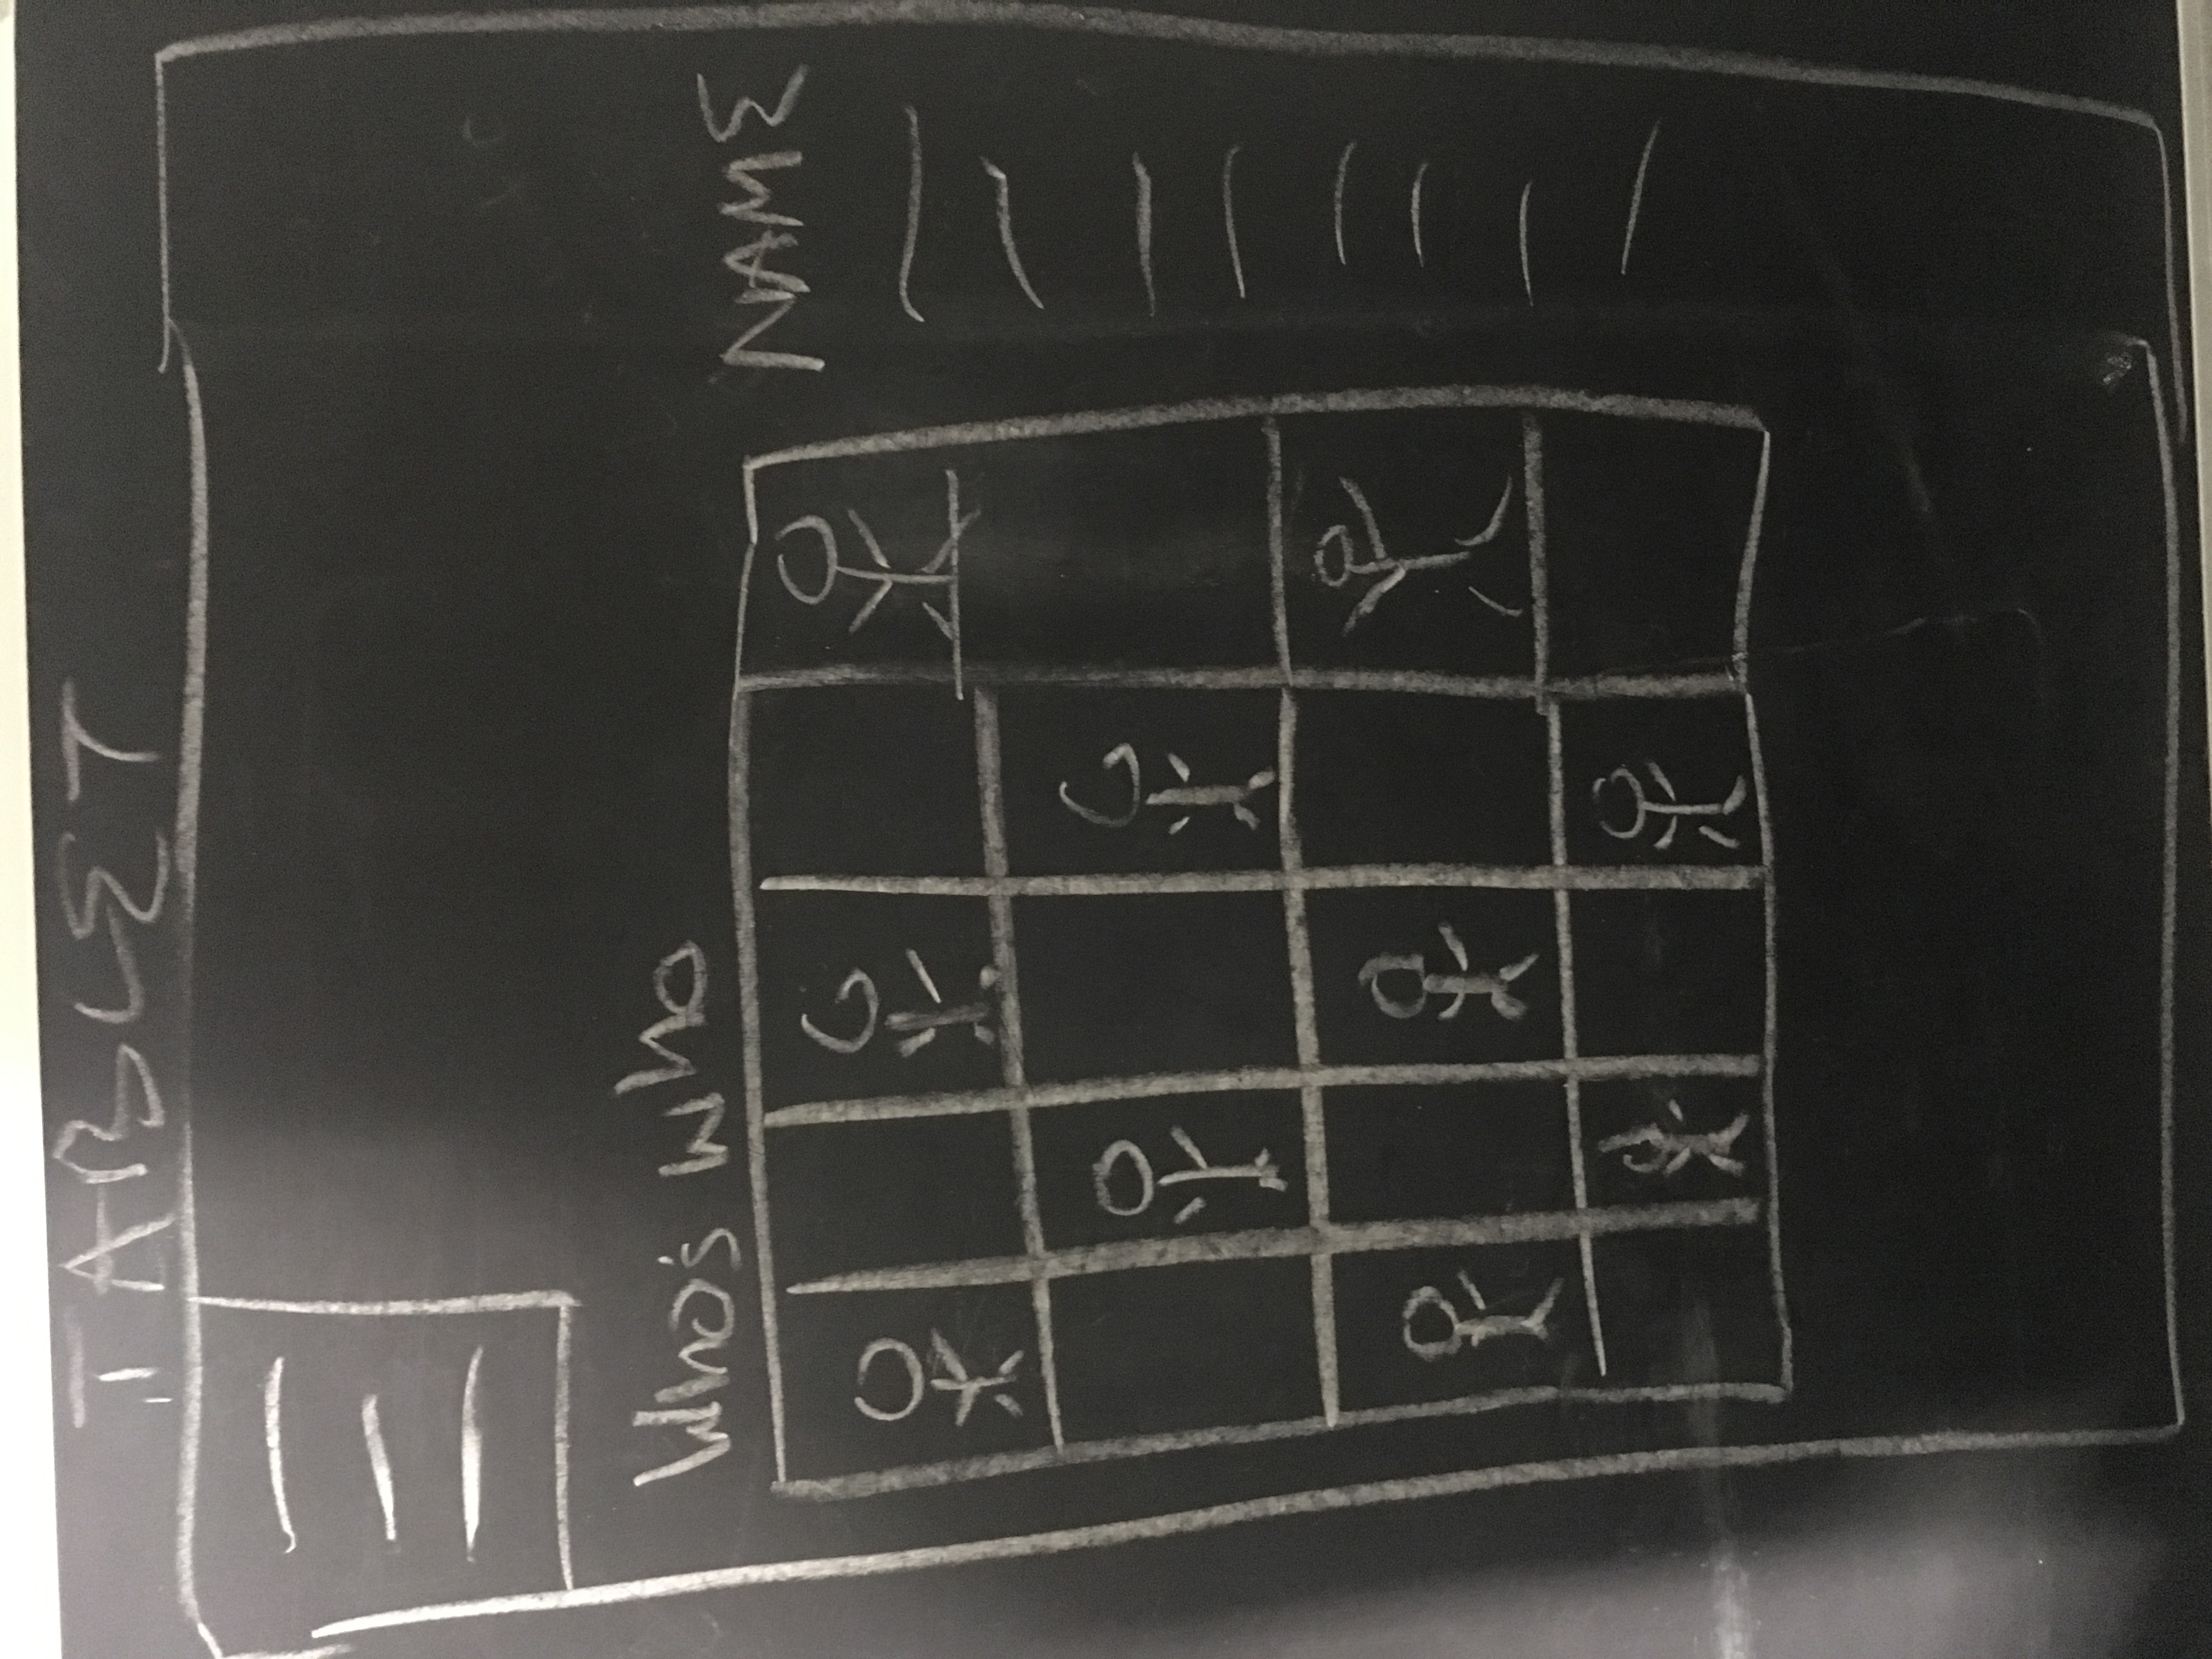 TABLET
Who's who
NAME